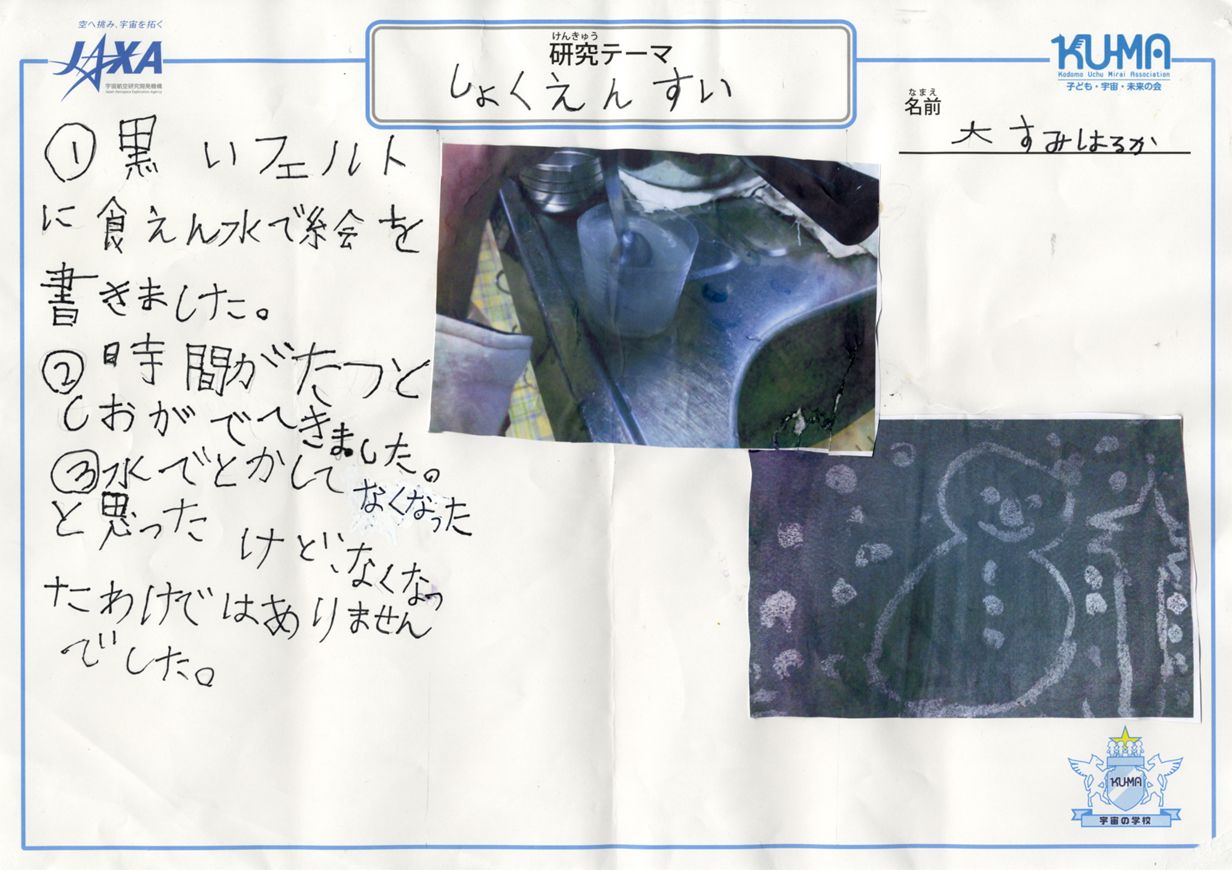 空へ挑み、宇宙を拓く
JAXA
宇宙航空研究開発機構
Japan Aerospace Exploration Agency
けんきゅう
研究テーマ
しょくえんすい
KU-MA
Kodomo Uchu Mirai Association
子ども・宇宙・未来の会
なまえ
名前
大すみはるか
①黒いフェルト
に食えん水で絵を
書きました。
②時間がたつと
しおがでてきました。
③水でとかしてなくなった
と思ったけど、なくなっ
たわけではありません
でした。
KU-MA
宇宙の学校